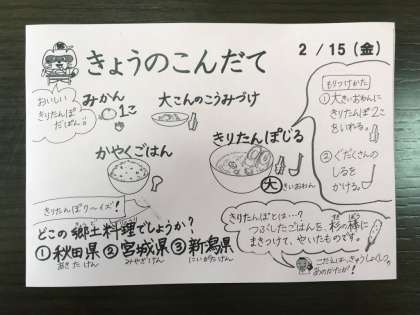 きょうのこんだて
2/15(金)
おいしい
きりたんぽ
だぽん。
みかん
1こ
大こんのこうみづけ
かやくごはん
きりたんぽじる
大きいおわん
もりつけかた
①大きいおわんに
きりたんぽ2こ
をいれる。
②ぐだくさんの
しるを
かける。
きりたんぽク〜イズ!
どこの郷土料理でしょうか?
①秋田県②宮城県③新潟県
あきたけん
みやぎけん
にいがたけん
きりたんぽとは…?
つぶしたごはんを、杉の棒に
すぎ ぼう
まきつけて、やいたものです。
こたえは、きゅうしょくしつ
あのかたが!